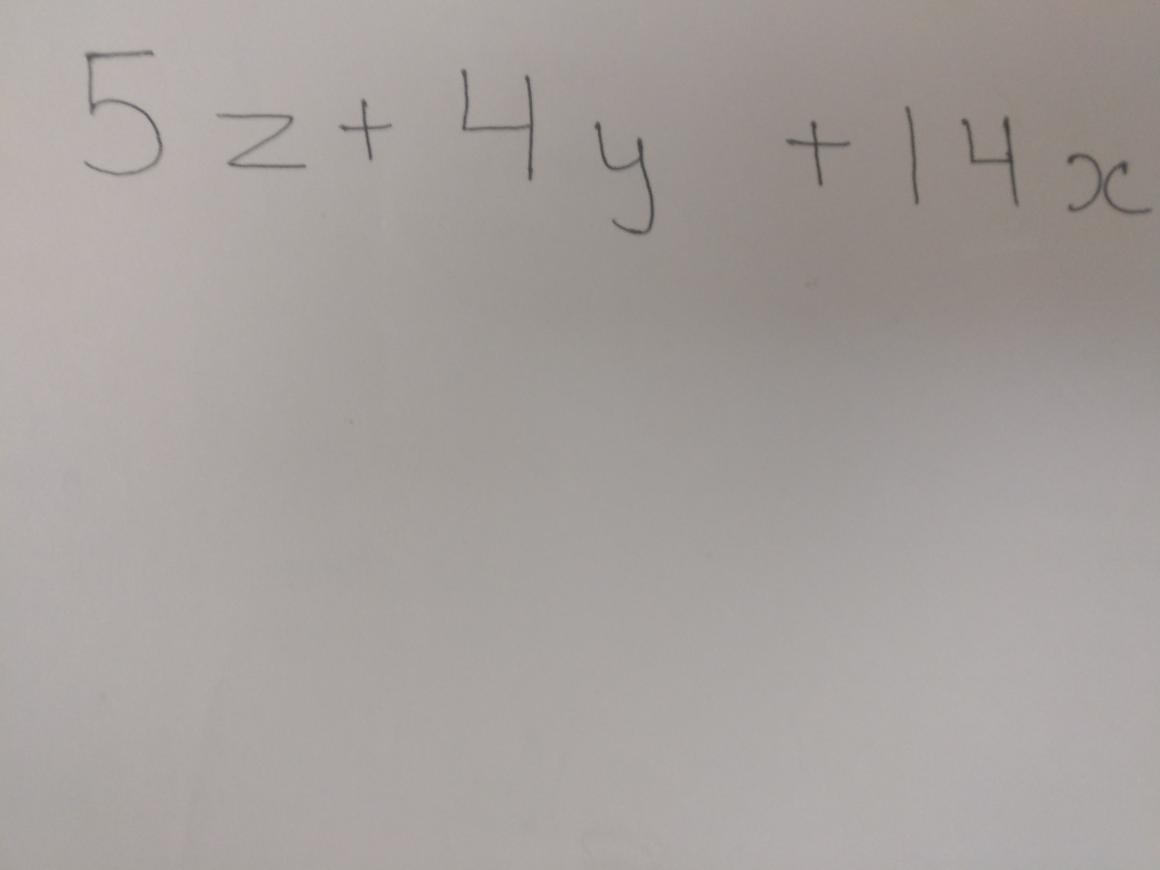 5z + 4y + 14x